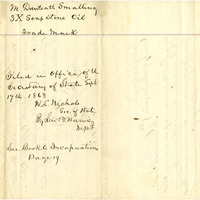 M. Dunteath Smalling
3X Soapstone Oil
Trade Mark
Filed in Office of the
Secretary of State Sept
17th 1863
W.C. Nichols
Sec. of Stat
By
Dept
See Book O. Incoporations
Page 19